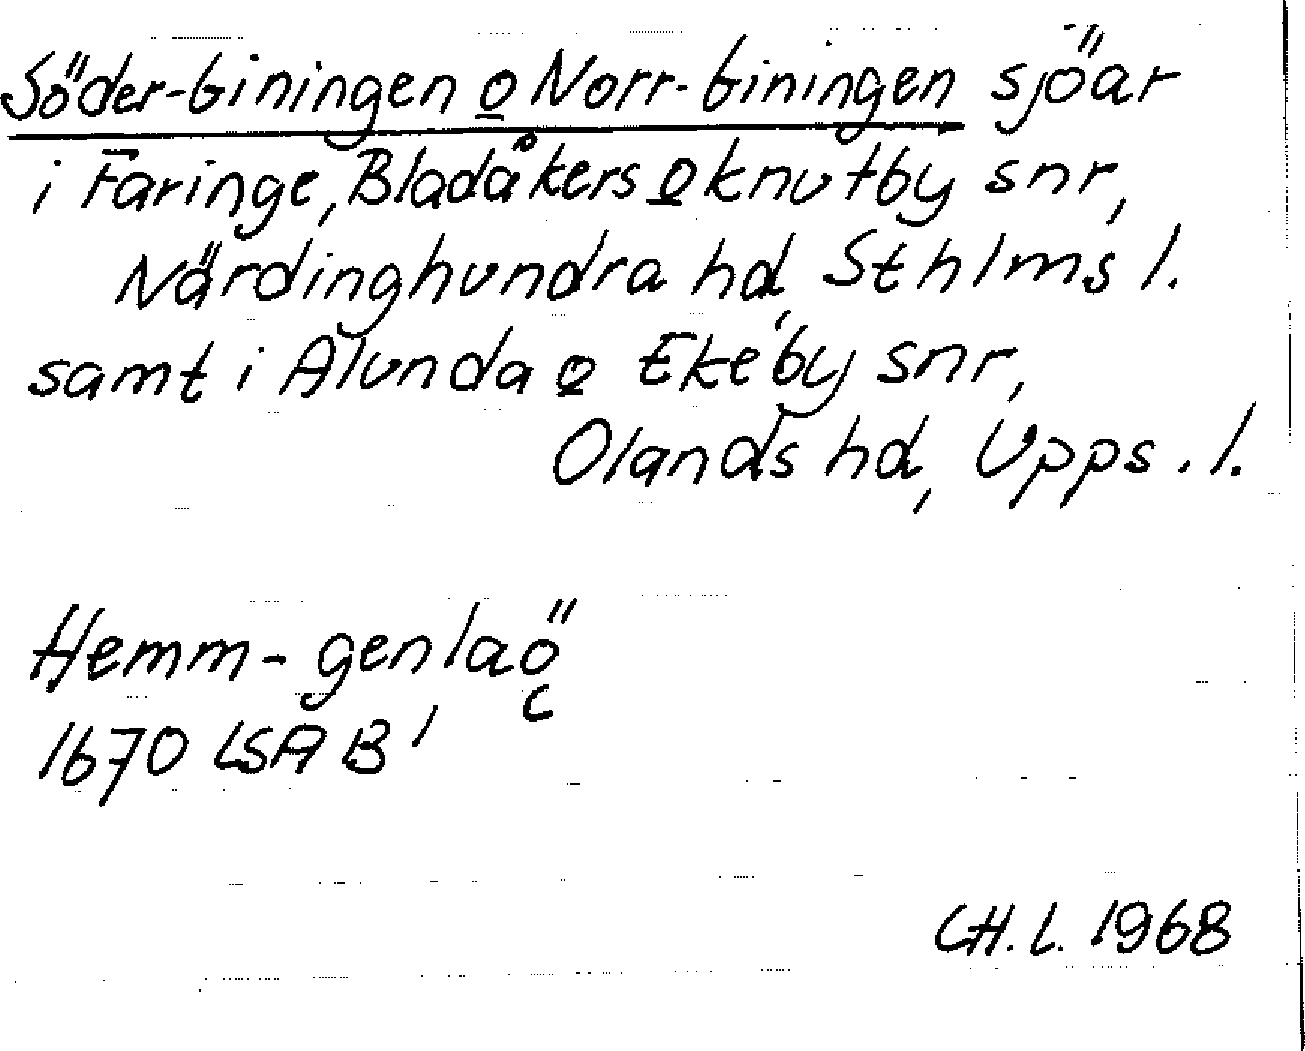 Söder-Giningen o Norr-Giningen sjöar
i Faringe, Bladåkers o Knutby snr,
Närdinghundra hd, Sthlms l.
samt i Alunda o Ekeby snr,
Olands hd, Upps. l.
Hemm-genlaö
1670 LSA B¹
C.H.L. 1968